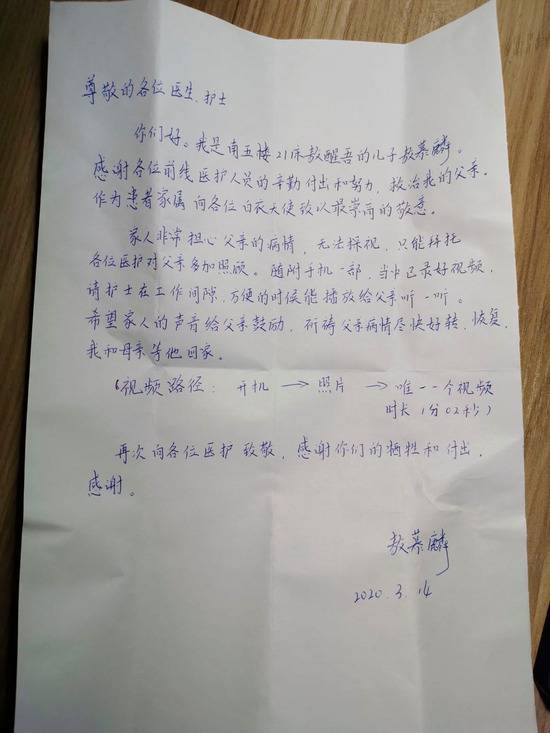 尊敬的各位医生、护士
你们好。我是南五楼21床敖醒吾的儿子敖慕麟。
感谢各位前线医护人员的辛勤付出和努力，救治我的父亲。
作为患者家属向各位白衣天使致以最崇高的敬意。
家人非常担心父亲的病情，无法探视，只能拜托
各位医护对父亲多加照顾。随附手机一部，当中已录好视频，
请护士在工作间隙，方便的时候能播放给父亲听一听。
希望家人的声音给父亲鼓励，祈祷父亲病情尽快好转，恢复，
我和母亲等他回家。
视频路径： 开机 → 照片 → 唯一一个视频
时长1分02秒)
再次向各位医护致敬，感谢你们的牺牲和付出，
感谢。
敖慕麟
2020.3.14